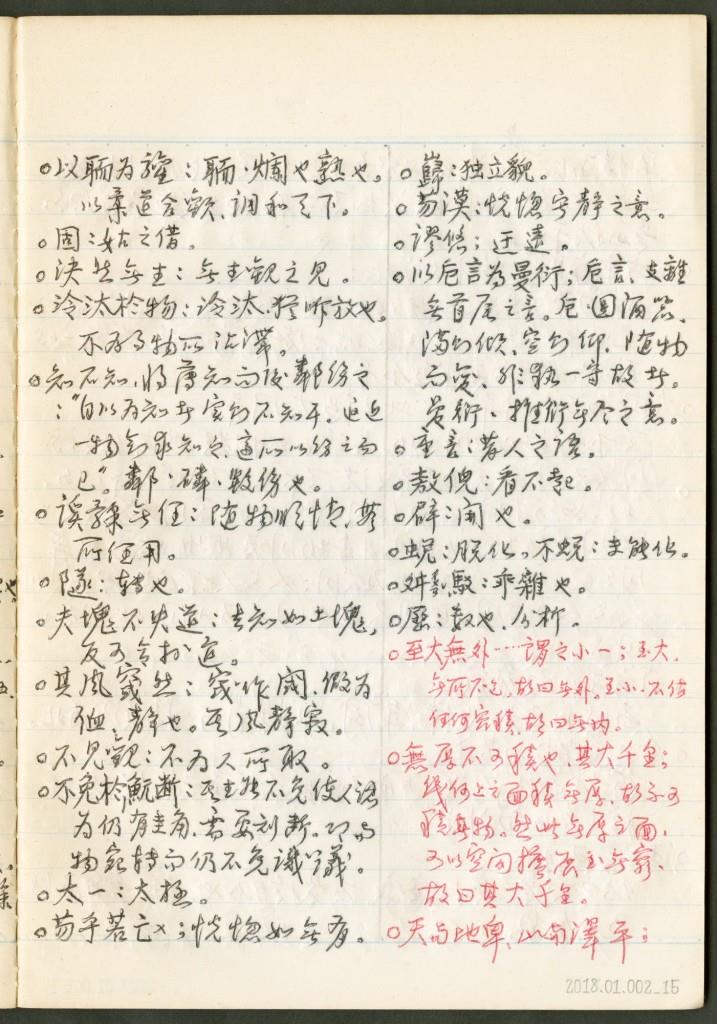 ○以聏為驩：聏、爛也熟也。
以柔道合歡、調和天下。
○固：姑之借。
○決然無主：無主觀之見。
○泠汰於物：泠汰、猶聽放也。
不為事物所沾滯。
○知不知、將薄知而後鄰傷之
："自以為知者實則不知耳、
一物則求知之、適所以傷之而
已"。鄰、磷、毀傷也。
○謑髁無任：隨物順情、無
所任用。
○隧：轉也。
○夫塊不失道：去知如土塊，
反可合於道。
○其風窢然：窢作閾、假為
侐、靜也。其風靜寂。
○不見觀：不為人所取。
○不免於魭斷：
為仍有圭角、需要刻斷。
物宛轉而仍不免譏議。
○太一：太極。
○芴乎若亡：恍惚如無有。
○巋：独立貌。
○芴漠：恍惚寂靜之意。
○謬悠：迂遠。
○以卮言為曼衍；卮言、支離
無首尾之言。卮、圓酒器、
滿則傾、空則仰、隨物
而變、非執一守故者。
曼衍、推衍無窮之意。
○重言：耆人之語。
○敖倪：看不起。
○辟：開也。
○蜕：脫化。不蜕：未能化。
○舛駁：乖雜也。
○厤：数也、分析。
○至大無外……謂之小一；至大、
無所不包、故曰無外。至小、不佔
任何容積、故曰無內。
○無厚不可積也、其大千里；
幾何上之面積無厚、故不可
積為物。然此無厚之面、
可以空間擴展至無窮、
故曰其大千里。
○天與地卑、山與澤平；
2018.01.002_15